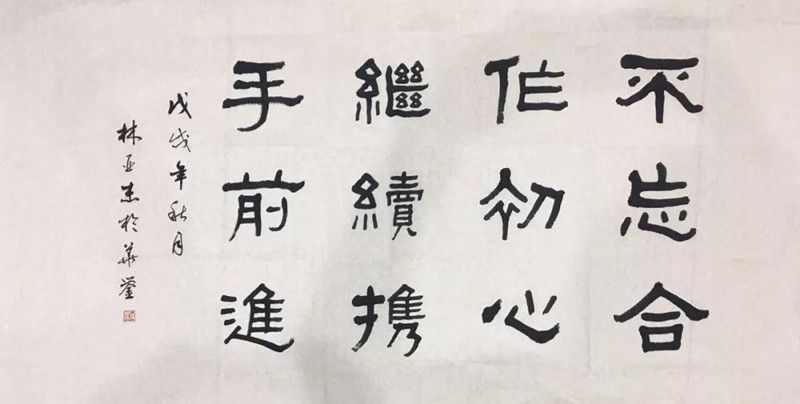 不忘合
作初心
繼續携
手前進
戊戌年秋月
林亚杰於華蓥